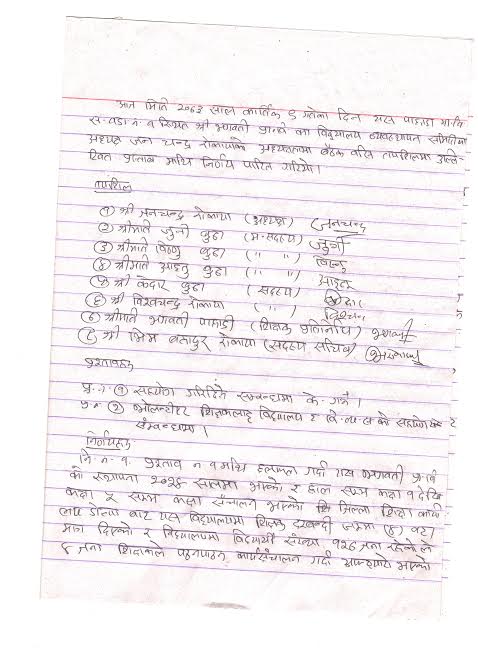 आज मिति २०६३ साल कार्तिक ६ गतेका दिन यस पाहाडा गा.वि
स. वडा नं. ९ स्थित श्री भगवती प्रा.वि को विद्यालय व्यवस्थापन समितिका
अध्यक्ष जन चन्द्र रोकायाको अध्यक्षतामा बैठक बसि तपशिलमा उल्ले-
खित प्रस्ताव माथि निर्णय पारित गरियो।
तपशिल
१) श्री जनचन्द्र रोकाया (अध्यक्ष) जनचन्द्र
२) श्रीमति जुगी बुढा (म.सदस्य) जुगी
३) श्रीमति विष्णु बुढा (" ") विष्णु
४) श्रीमति आइतु बुढा (" ")
५) श्री केदार बुढा (सदस्य) केदार
६) श्री विरचन्द्र रोकाया (")
७) श्रीमति भगवती पाहाडी (शिक्षक प्रतिनिधि) भगवती
८) श्री भिम बहादुर रोकाया (सदस्य सचिव)
प्रस्तावहरु
प्र.नं. १) सहयोग गरिदिने सम्बन्धमा के गर्ने।
प्र.नं २) भोलन्टीयर शिक्षकलाई विद्यालय र वि.व्य.स.को सहयोग
सम्बन्धमा।
निर्णयहरु
नि.नं. १. प्रस्ताव नं १ माथि छलफल गर्दा यस भगवती प्रा.वि
को स्थापना सालमा भएको र हाल सम्म कक्षा १ देखि
कक्षा ५ सम्म कक्षा संचालन भएको जिल्ला शिक्षा कार्या-
लय डोल्पा बाट यस विद्यालयमा शिक्षक दरबन्दी जम्मा (४) वटा
मात्र दिएको र विद्यालयमा विद्यार्थी संख्या १२६ जना रहेकोले
४ जना शिक्षकले पठनपाठन कार्यसंचालन गर्दा अप्ठ्यारो भएको